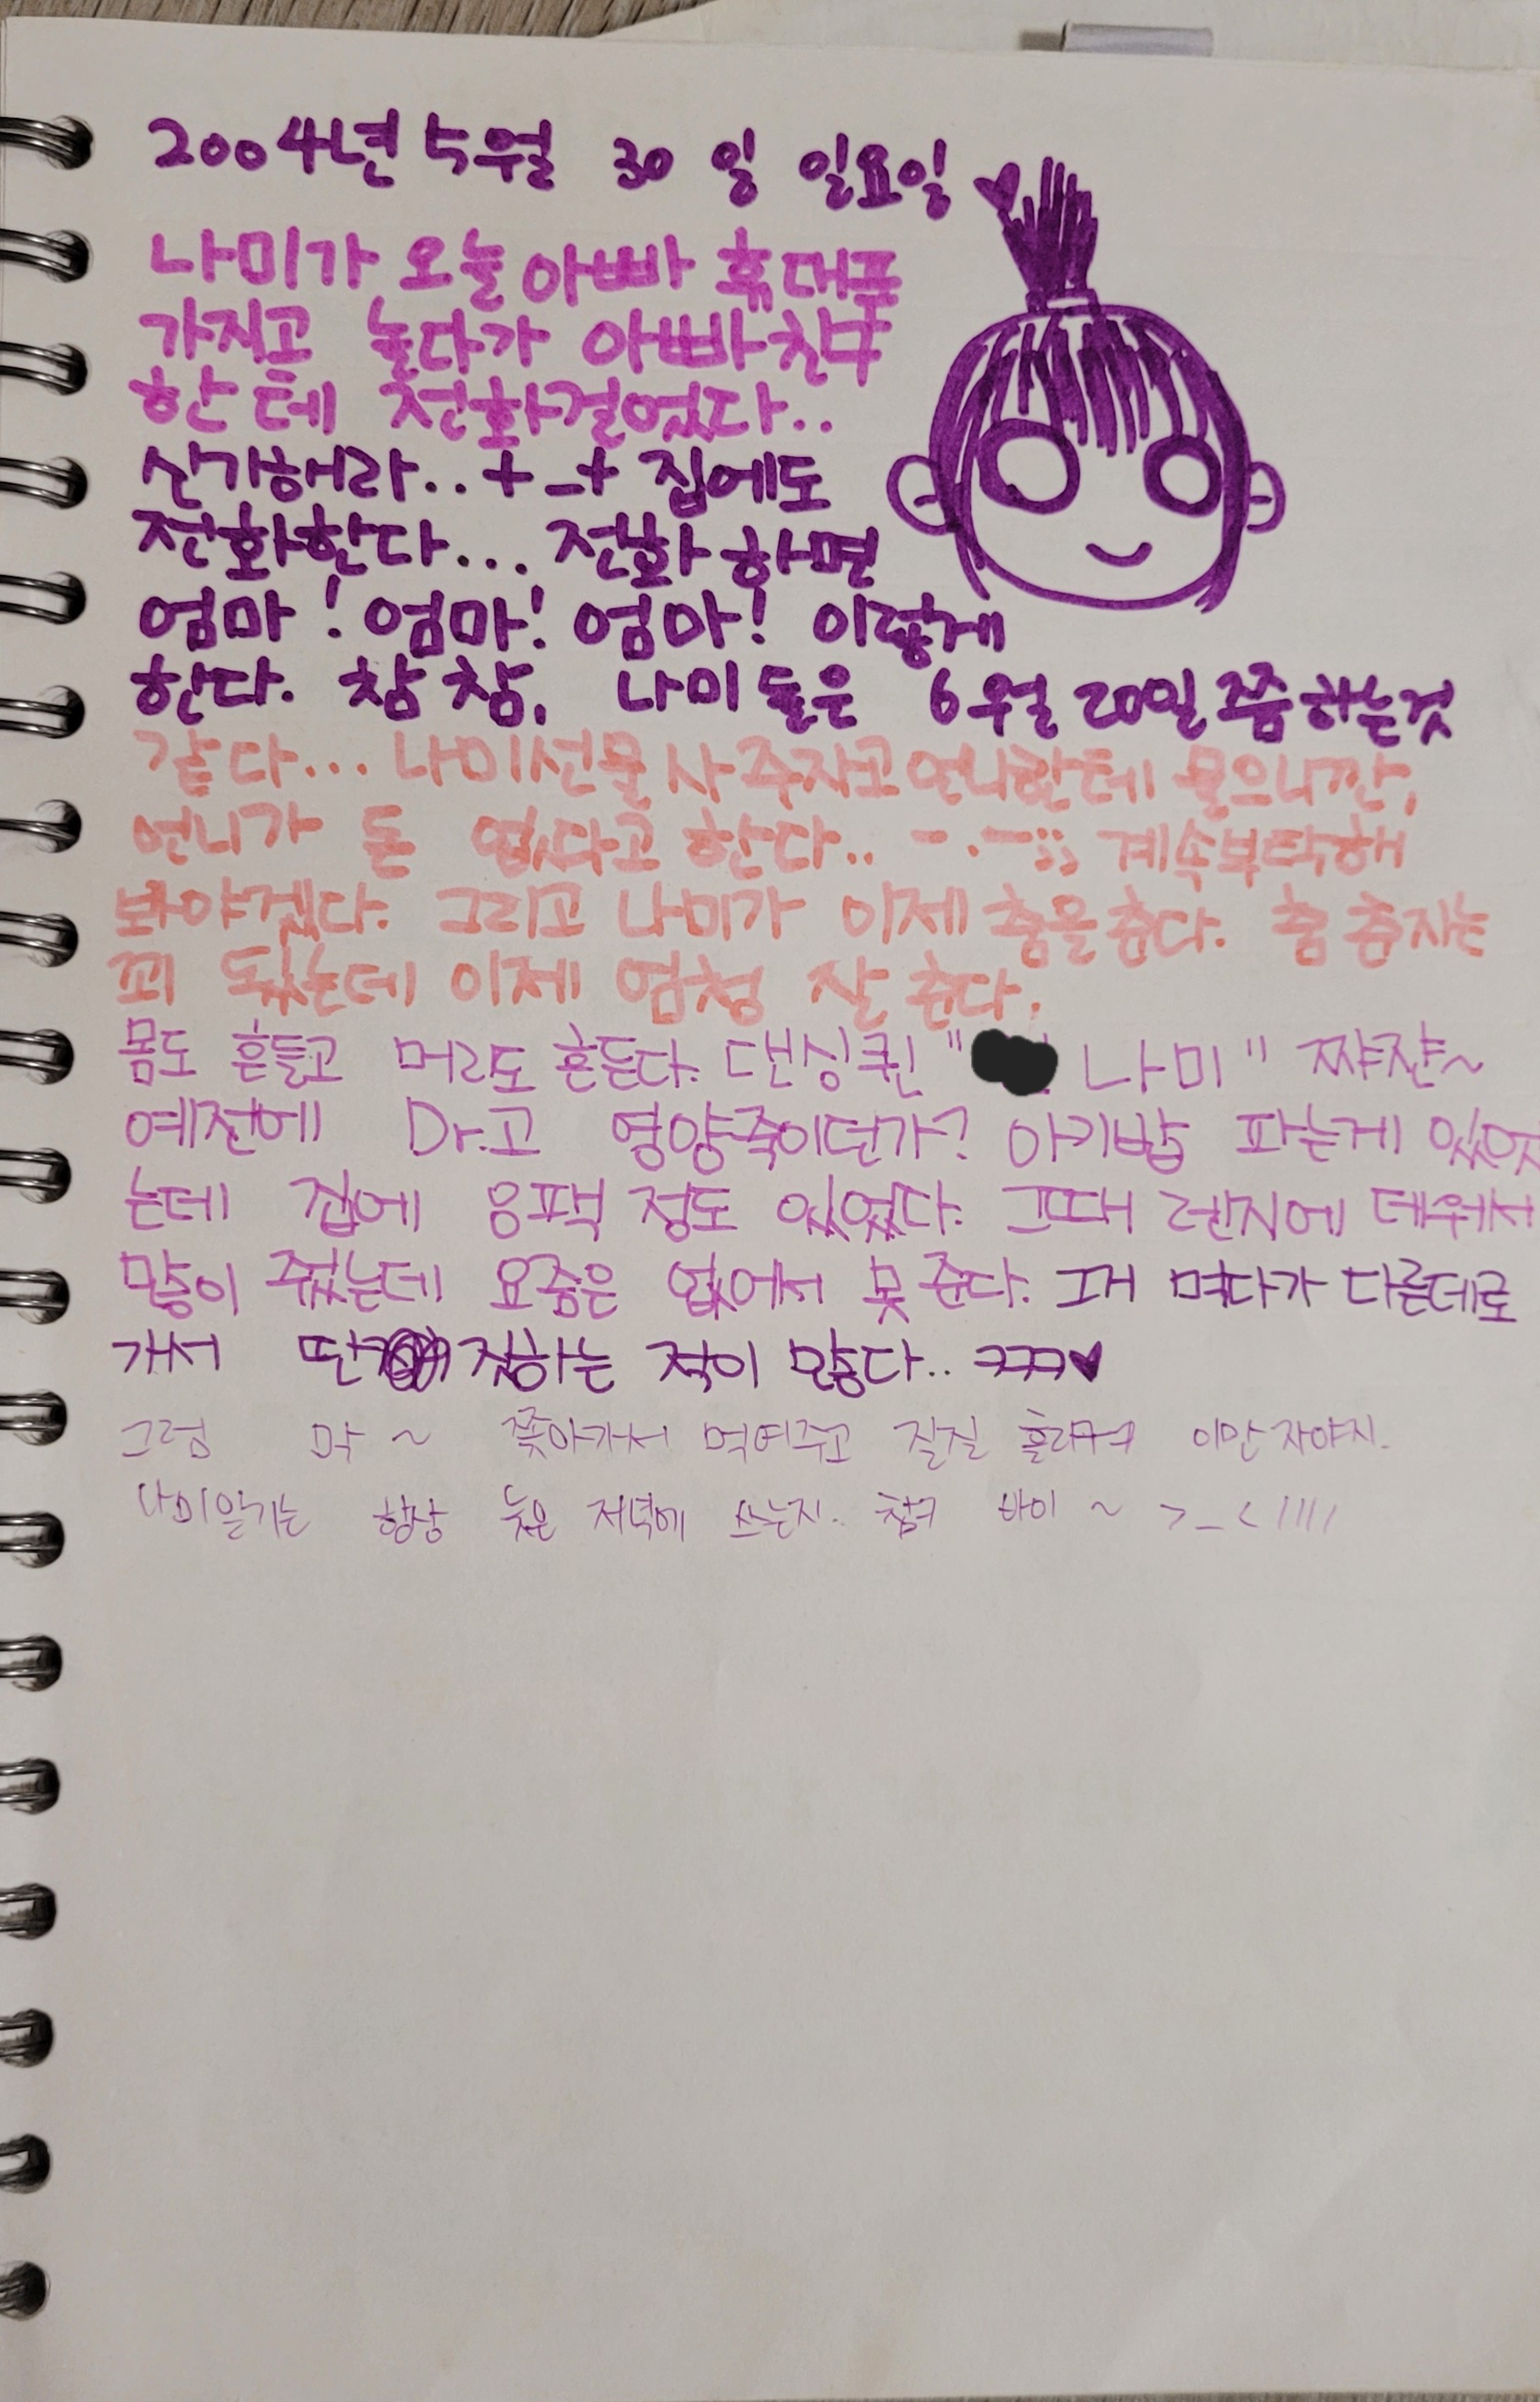 2004년 5월 30일 일요일♥
나미가 오늘 아빠 휴대폰
가지고 놀다가 아빠친구
한테 전화걸었다..
신기해라..+_+ 집에도
전화한다... 전화하면
엄마! 엄마! 엄마! 이렇게
한다. 참참, 나미돌은 6월 20일쯤하는것
같다... 나미선물사주자고언니한테 물으니깐,
언니가 돈 없다고한다.. -.-;; 계속부탁해
봐야겠다. 그리고 나미가 이제 춤을춘다. 춤 춘지는
꽤 됐는데 이제 엄청 잘 춘다.
몸도 흔들고 머리도 흔든다. 댄싱퀸 " 나미" 쨔쟌~
예전에 Dr.고 영양죽이던가? 아기밥 파는게 있었
는데 집에 응팩 정도 있었다. 그때 렌지에 데워서
많이 줬는데 요즘은 없어서 못준다. 근데 먹다가 다른데로
가서 딴짓하는 적이 많다.. ㅋㅋㅋ♥
그럼 막~ 쫓아가서 먹여주고 질질 흘리ㅋㅋ 이만 자야지.
나미일기는 항상 늦은 저녁에 쓰는지.. 참ㅋ 바이~ >_<////